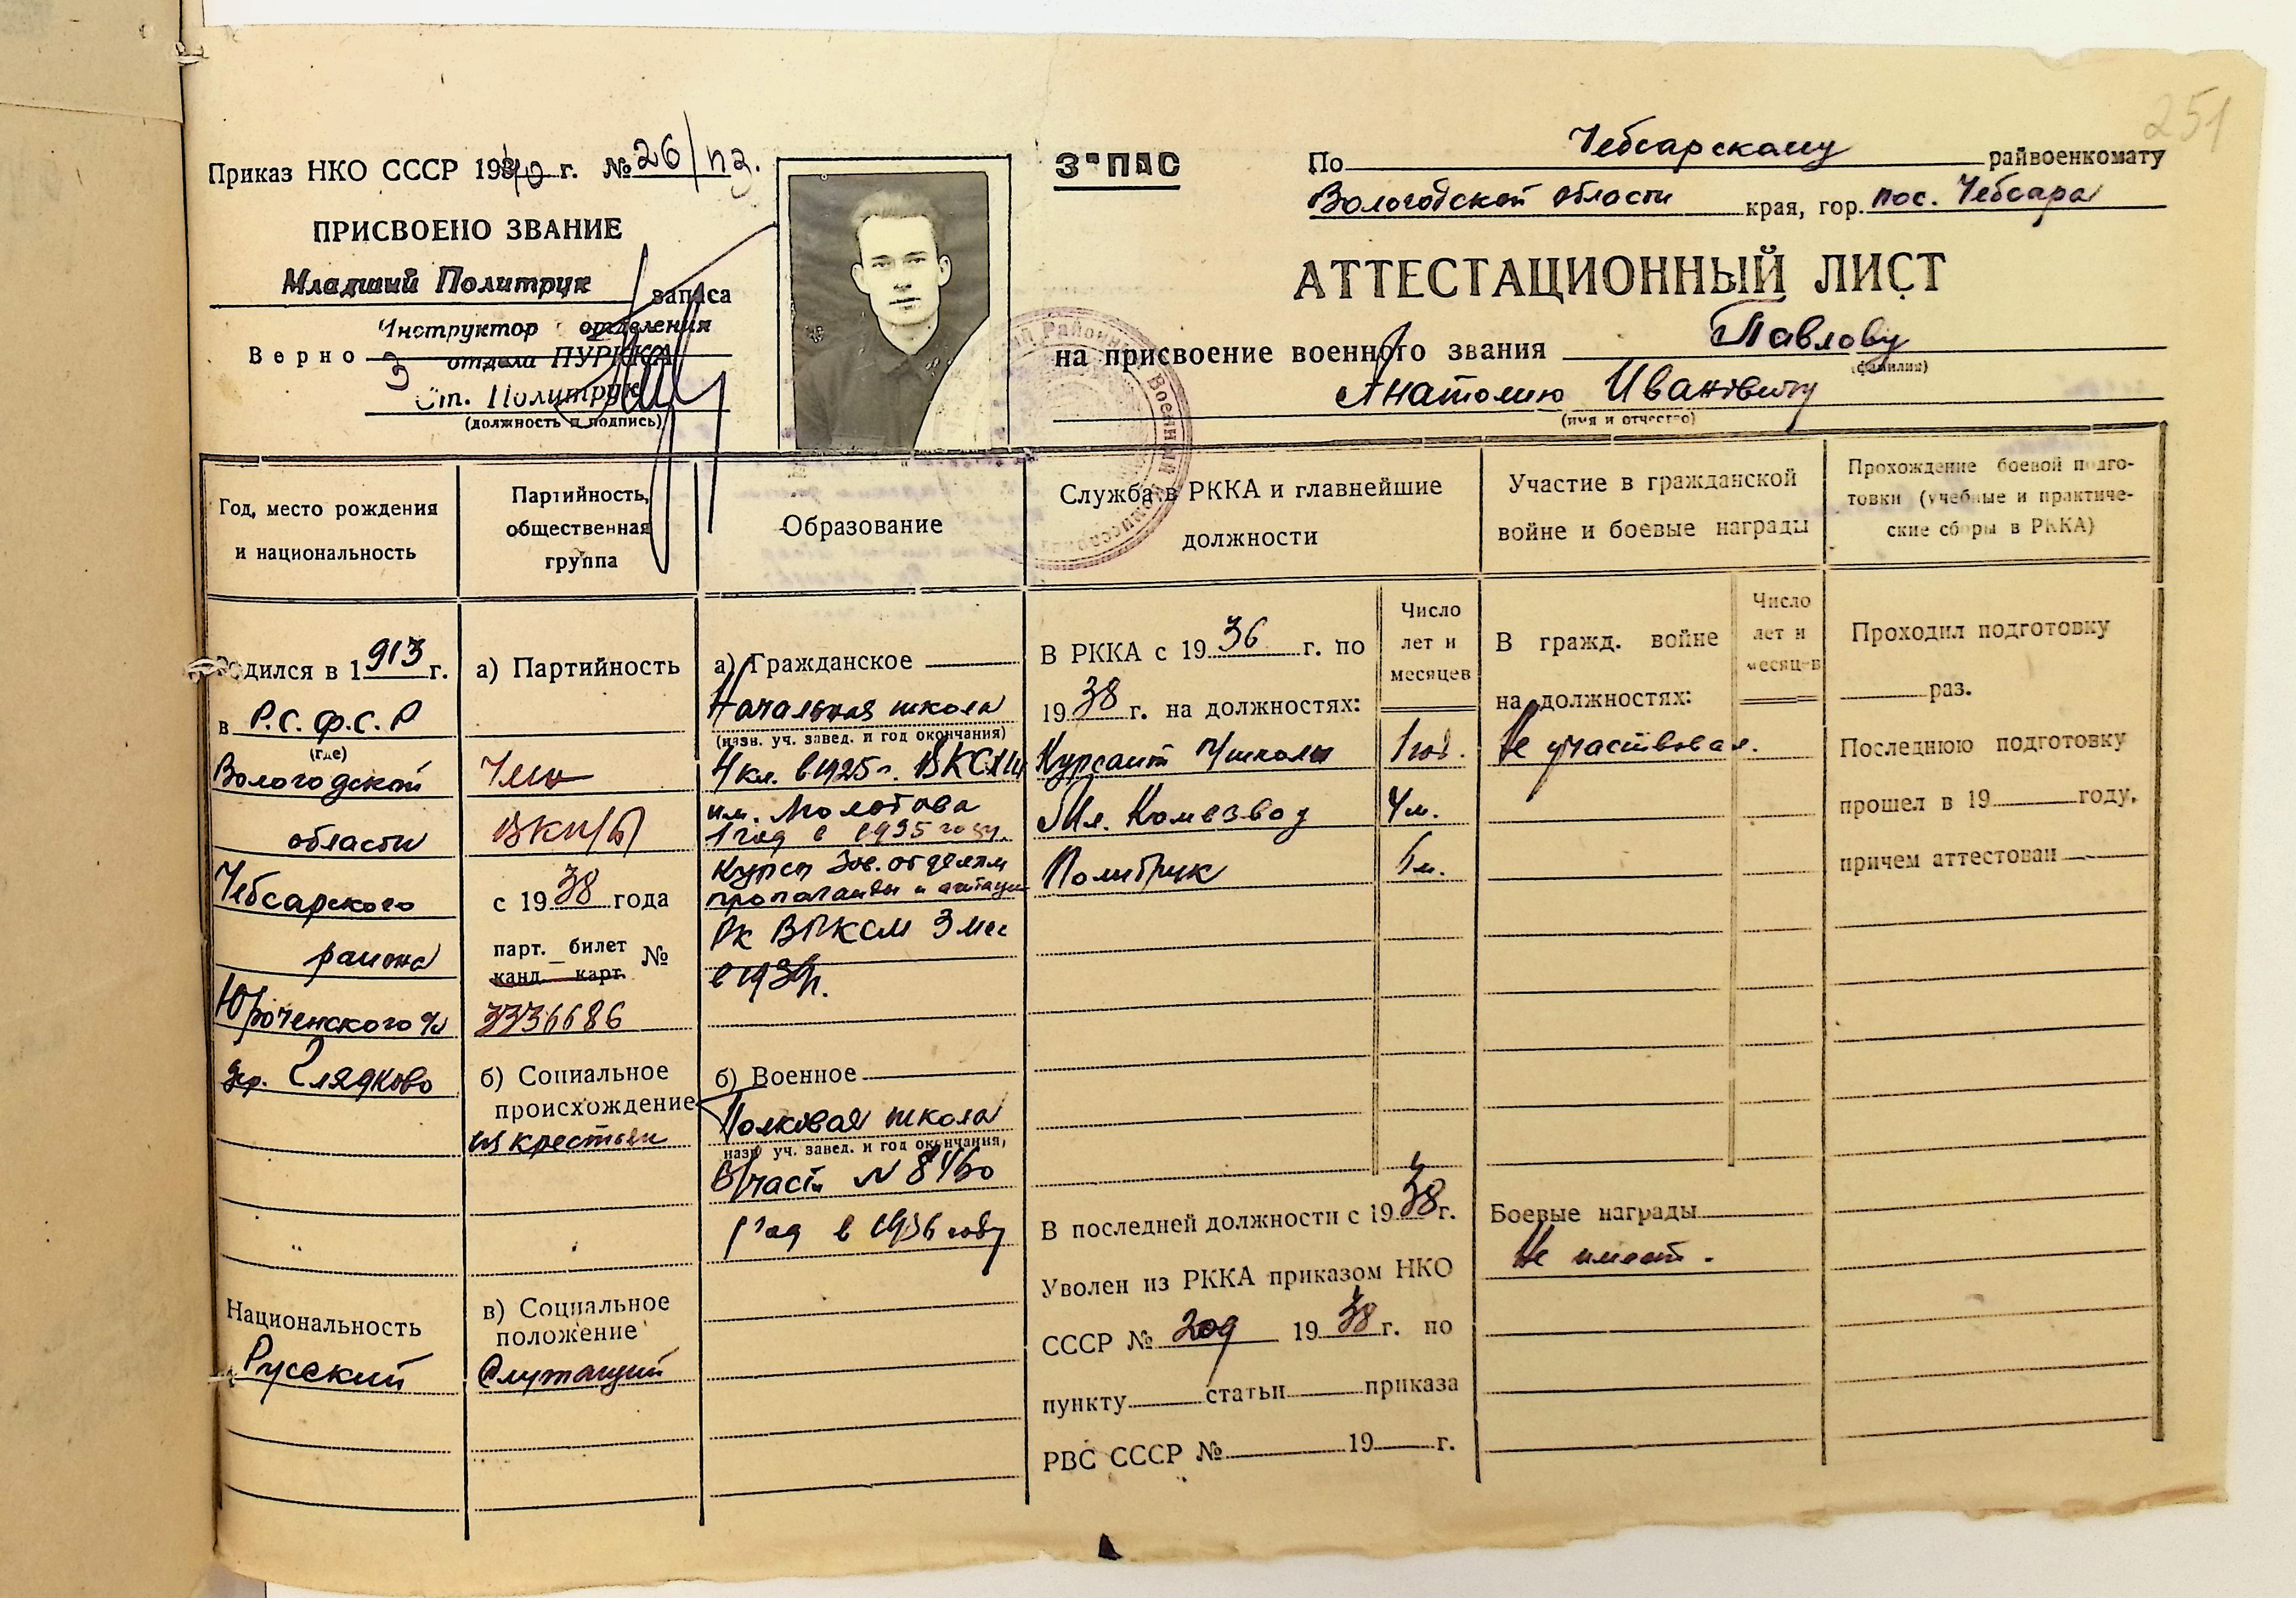 251
Приказ НКО СССР 1940 г. № 26/пз.
ПРИСВОЕНО ЗВАНИЕ
Младший Политрук
запаса
Инструктор отделения
Верно
3 отдела ПУРККА
Ст. Политрук
(должность и подпись)
ЗАПАС
По Чебсарскому райвоенкомату
Вологодской области края, гор. пос. Чебсара
АТТЕСТАЦИОННЫЙ ЛИСТ
на присвоение военного звания Павлову
(фамилия)
Анатолию Ивановичу
(имя и отчество)
Год, место рождения
и национальность
Родился в 1913 г.
в Р.С.Ф.С.Р
(где)
Вологодской
области
Чебсарского
района
Юроченского с/с
дер. Глядково
Национальность
Русский
Партийность,
общественная
группа
а) Партийность
Член
ВКП/б/
с 1938 года
парт. билет
канд. карт. №
3336686
б) Социальное
происхождение
из крестьян
в) Социальное
положение
Служащий
Образование
а) Гражданское
Начальная школа
(назв. уч. завед. и год окончания)
4 кл. в 1925 г. ВКСХШ
им. Молотова
1 год в 1935 году.
Курсы Зав. отделам
пропаганды и агитации
Рк ВЛКСМ 3 мес
в 1939г.
б) Военное
Полковая школа
назв. уч. завед. и год окончания)
В/части № 8460
1 год в 1936 году
Служба в РККА и главнейшие
должности
В РККА с 1936 г. по
1938 г. на должностях:
Число
лет и
месяцев
Курсант школы 1 год.
Мл. Комвзвод 4 м.
Политрук м.
В последней должности с 1938 г.
Уволен из РККА приказом НКО
СССР № 209 1938 г. по
пункту статьи приказа
РВС СССР № 19 г.
Участие в гражданской
войне и боевые награды
В гражд. войне
на должностях:
Число
лет и
месяцев
Не участвовал.
Боевые награды
Не имеет.
Прохождение боевой подго-
товки (учебные и практиче-
ские сборы в РККА)
Проходил подготовку
раз.
Последнюю подготовку
прошел в 19 году,
причем аттестован